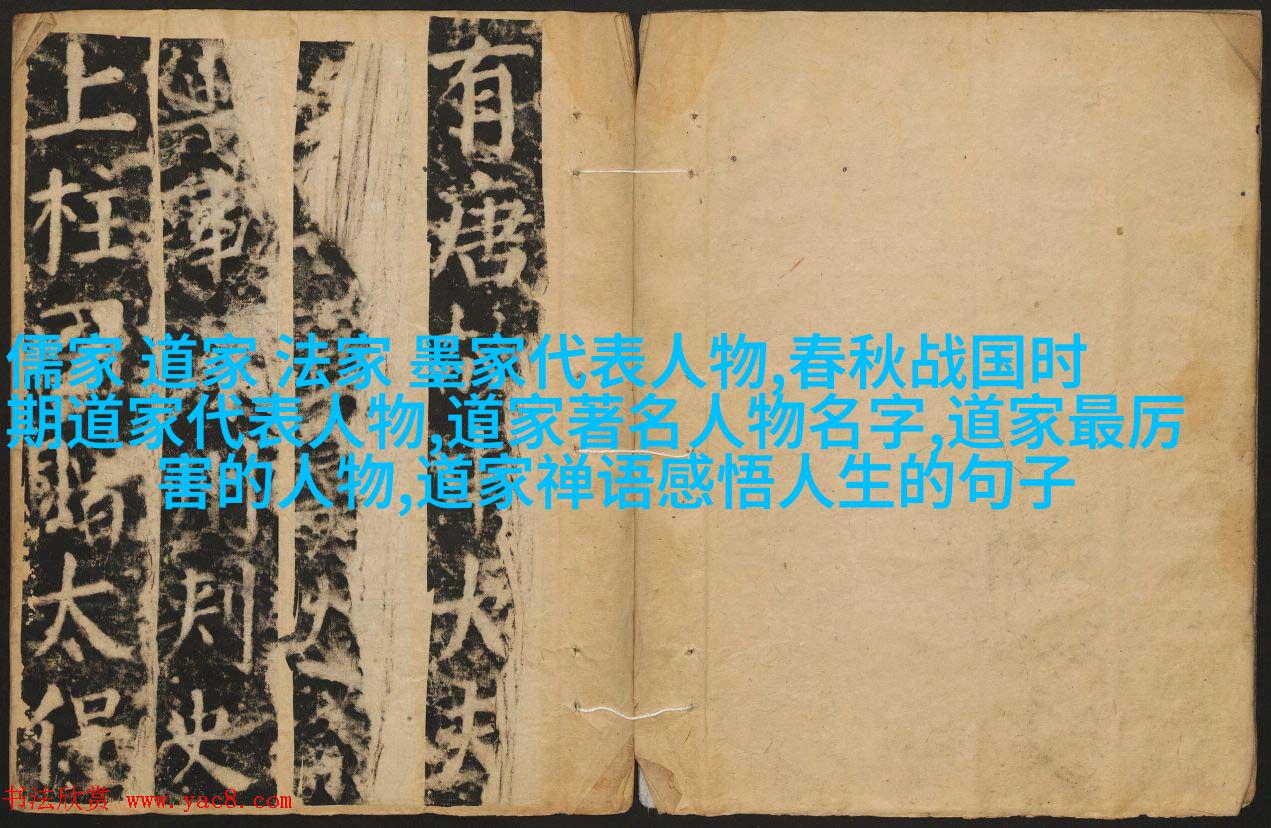 儒家 道家 法家 墨家代表人物,春秋战国时
期道家代表人物,道家著名人物名字,道家最厉
害的人物,道家禅语感悟人生的句子
有唐大夫
軍刺史
上柱國贈太保
书法欣赏 www.yac8.com